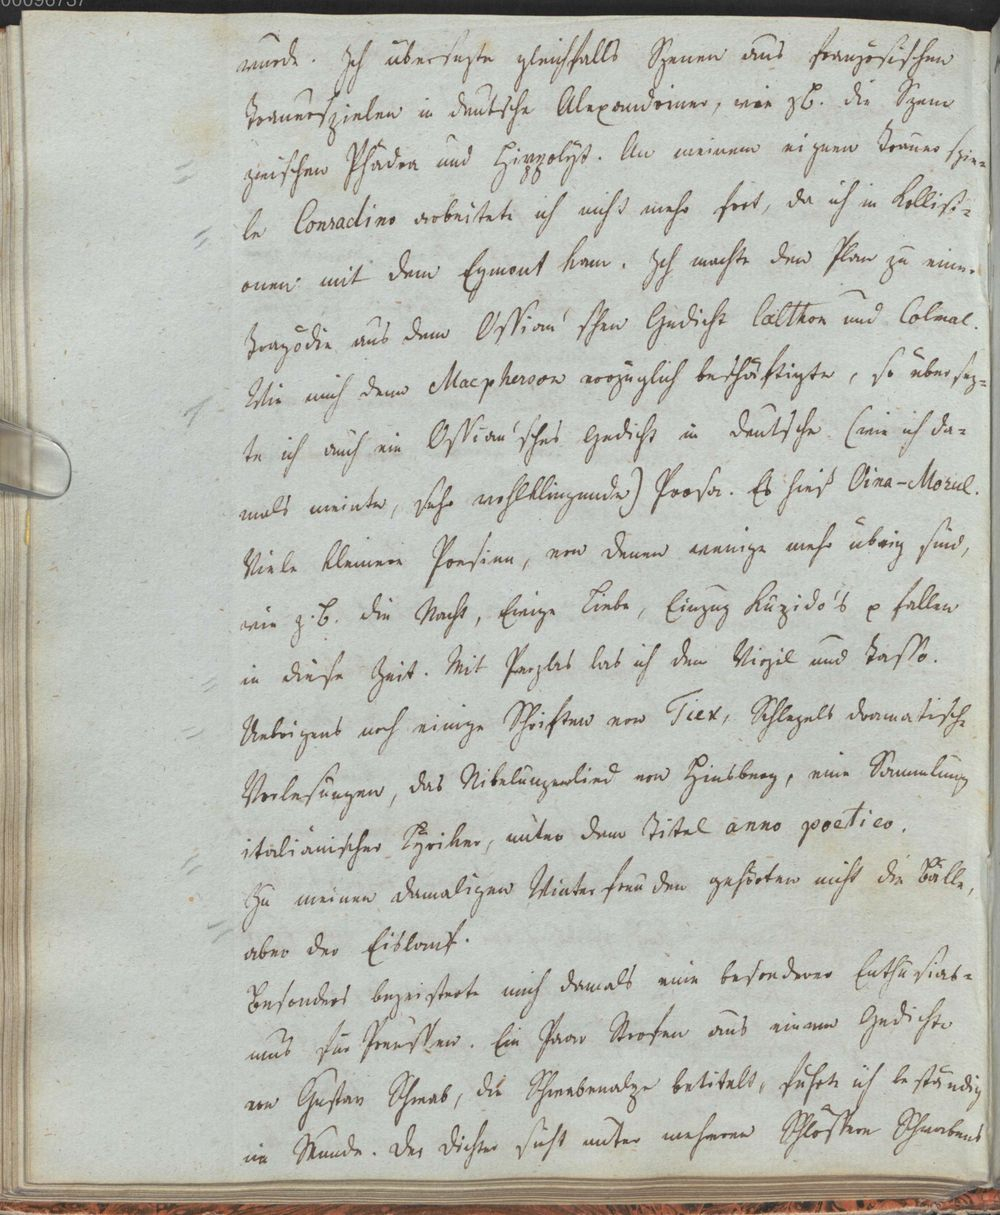 00096737
wurde. Ich übersezte gleichfalls Szenen aus französischen
Trauerspielen in deutsche Alexandriner, wie zB. die Szene
zwischen Phädra und Hippolyt. An meinem eignen Trauerspie-
le Conradino arbeitete ich nicht mehr fort, da ich in Kollisi-
onen mit dem Egmont kam. Ich machte den Plan zu einer
Tragödie aus dem Ossian'schen Gedicht Calthon und Colmal.
Wie mich denn Macpherson vorzüglich beschäftigte, so übersez-
te ich auch ein Ossian'sches Gedicht in deutsche (wie ich da-
mals meinte, sehr wohlklingende) Prosa. Es hieß Oina-Morul.
Viele kleinere Poesien, von denen wenige mehr übrig sind,
wie z.B. die Nacht, Ewige Liebe, Einzug Kupido's p fallen
in diese Zeit. Mit Perglas las ich den Virgil und Tasso.
Uebrigens noch einige Schriften von Tiek, Schlegels dramatische
Vorlesungen, das Nibelungenlied von Hinsberg, eine Sammlung
italiänischer Lyriker, unter dem Titel anno poetico.
Zu meinen damaligen Winterfreuden gehörten nicht die Bälle,
aber der Eislauf.
Besonders begeisterte mich damals ein besonderer Enthusias-
mus für Preussen. Ein Paar Strofen aus einem Gedichte
von Gustav Schwab, die Schwabenalpe betitelt, führte ich beständig
im Munde. Der Dichter sieht unter mehreren Schlössern Schwabens